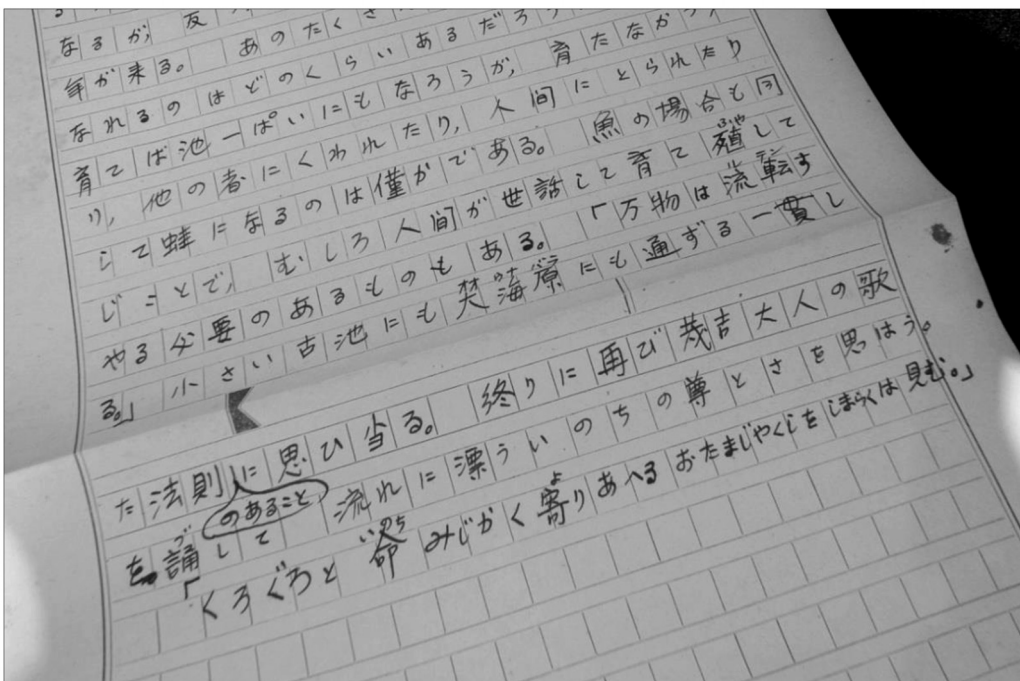 なるが, 友
年が来る。 あのたくさ
なれるのはどのくらいあるだろう
育てば池一ぱいにもなろうが, 育たなかっ
り, 他の者にくわれたり, 人間にとられたり
して蛙になるのは僅かである。 魚の場合も同
じことで, むしろ人間が世話して育て殖して
やる必要のあるものもある。 「万物は流転す
る。」 小さい古池にも 海寮にも通ずる一貫し
た法則のあることに思ひ当る。 終りに再び茂吉大人の歌
を誦して 流れに漂ういのちの尊とさを思はう。
「くろぐろと 命みじかく寄りあへる おたまじやくしをしまらくは見む。」